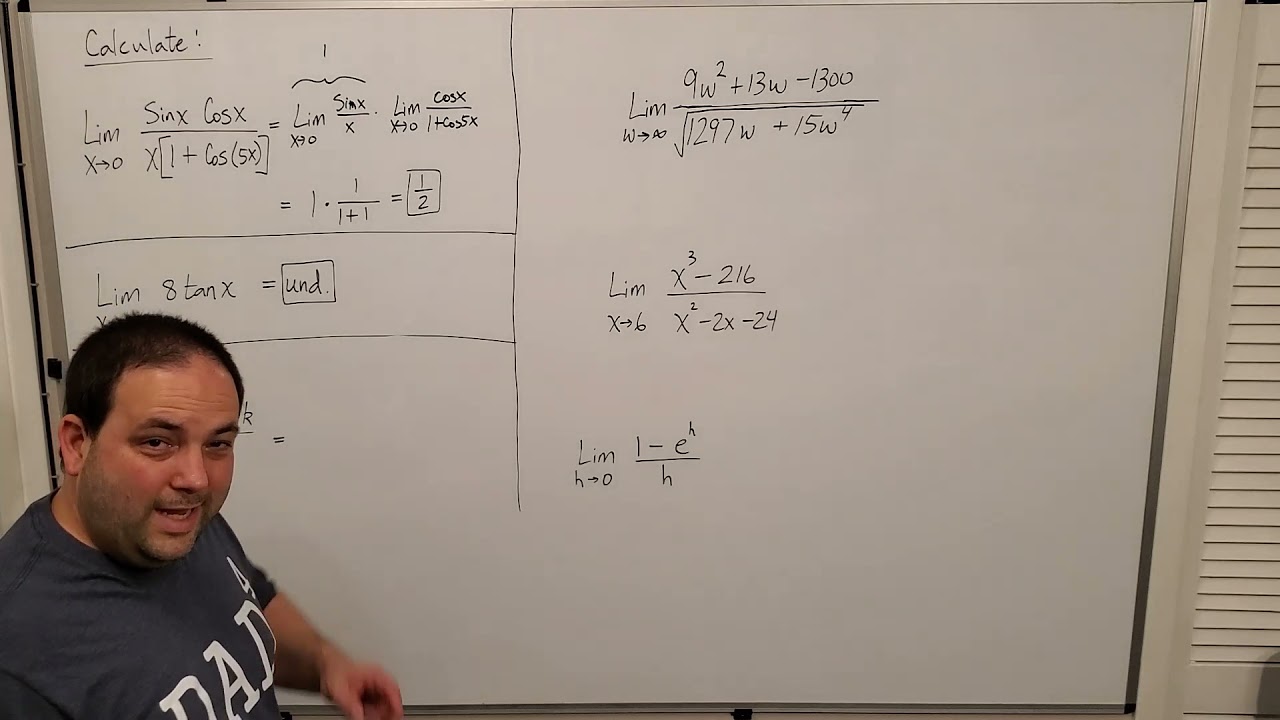 Calculate:
1
Lim x→0 Sinx Cosx / x[1 + Cos(5x)] = Lim x→0 Sinx / x · Lim x→0 Cosx / 1+Cos5x
= 1 · 1 / 1+1 = 1/2
Lim 8 tan x = und.
x
k
=
Lim w→∞ 9w² + 13w - 1300 / √1297w + 15w⁴
Lim x→6 x³ - 216 / x² - 2x - 24
Lim h→0 1 - eʰ / h
4
DAD